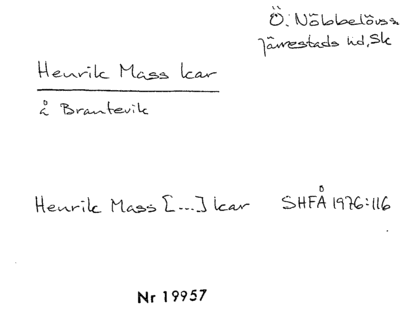 Ö. Nöbbelövs sn
Järrestads hd, Sk
Henrik Mass kar
å Brantevik
Henrik Mass [---] kar SHFÅ 1976:116
Nr 19957